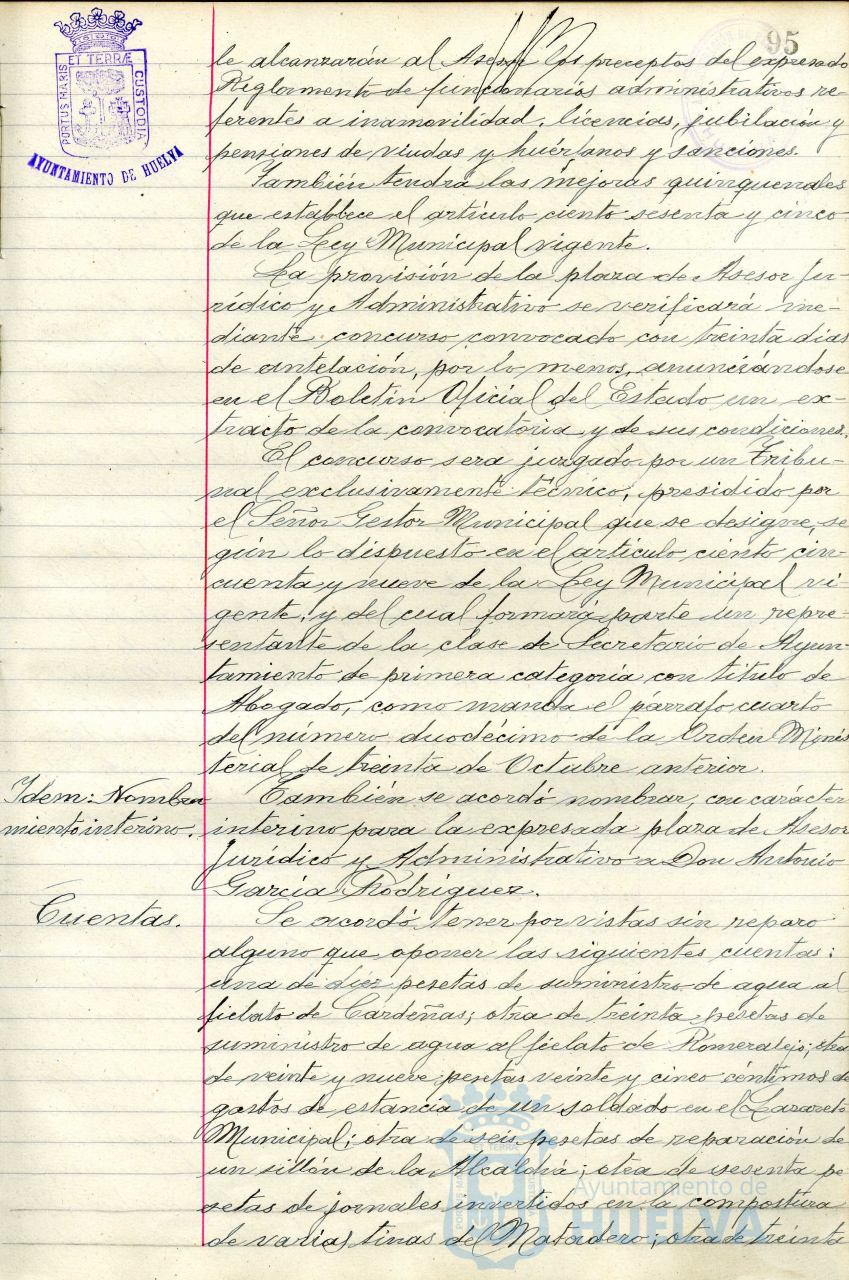 95
PORTUS MARIS ET TERRÆ CUSTODIA
AYUNTAMIENTO DE HUELVA
le alcanzarán al Asesor los preceptos del expresado
Reglamento de funcionarios administrativos re-
ferentes a inamovilidad, licencias, jubilación y
pensiones de viudas y huérfanos y sanciones.
También tendrá las mejoras quinquenales
que establece el artículo ciento sesenta y cinco
de la Ley Municipal vigente.
La provisión de la plaza de Asesor Ju-
rídico y Administrativo se verificará me-
diante concurso convocado con treinta dias
de antelación, por lo menos, anunciándose
en el Boletín Oficial del Estado un ex-
tracto de la convocatoria y de sus condiciones.
El concurso será juzgado por un Tribu-
nal exclusivamente técnico, presidido por
el Señor Gestor Municipal que se designe, se
gún lo dispuesto en el artículo ciento cin-
cuenta y nueve de la Ley Municipal vi-
gente, y del cual formará parte un repre-
sentante de la clase de Secretario de Ayun-
tamiento de primera categoría con titulo de
Abogado, como manda el párrafo cuarto
del número duodécimo de la Orden Minis
terial de treinta de Octubre anterior.
Idem: Nombra
miento interino.
También se acordó nombrar, con carácter
interino para la expresada plaza de Asesor
Jurídico y Administrativo a Don Antonio
García Rodriguez.
Cuentas.
Se acordó tener por vistas sin reparo
alguno que oponer las siguientes cuentas:
una de diez pesetas de suministro de agua al
fielato de Cardeñas; otra de treinta pesetas de
suministro de agua al fielato de Romeralejo; otra
de veinte y nueve pesetas veinte y cinco céntimos de
gastos de estancia de un soldado en el Lazareto
Municipal; otra de seis pesetas de reparación de
un sillón de la Alcaldía; otra de sesenta pe
setas de jornales invertidos en la compostura
de varias tinas del Matadero; otra de treinta
Ayuntamiento de
HUELVA